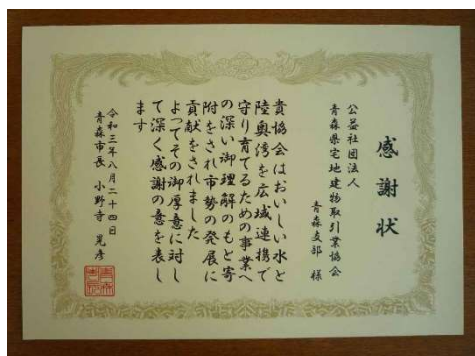 感謝状
公益社団法人
青森県宅地建物取引業協会
青森支部 様
貴協会はおいしい水と
陸奥湾を広域連携で
守り育てるための事業へ
の深い御理解のもと寄
附をされ市勢の発展に
貢献をされました
よってその御厚意に対し
て深く感謝の意を表し
ます
令和三年八月二十四日
青森市長 小野寺 晃彦